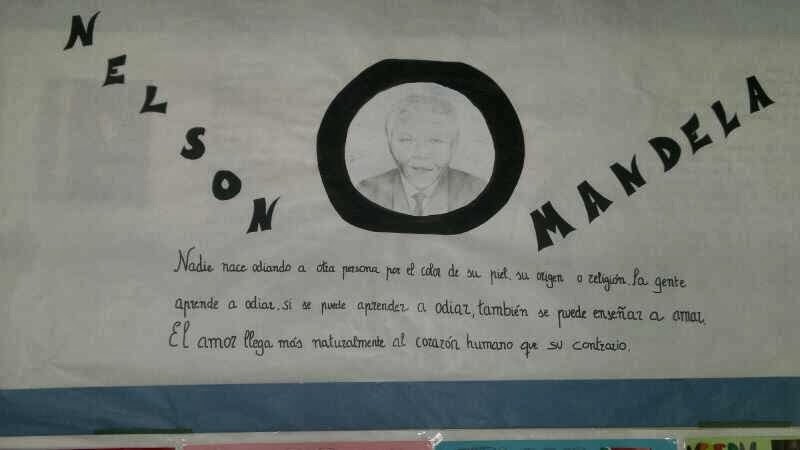 NELSON
MANDELA
Nadie nace odiando a otra persona por el color de su piel, su origen o religión. La gente
aprende a odiar, si se puede aprender a odiar, también se puede enseñar a amar.
El amor llega más naturalmente al corazón humano que su contrario.